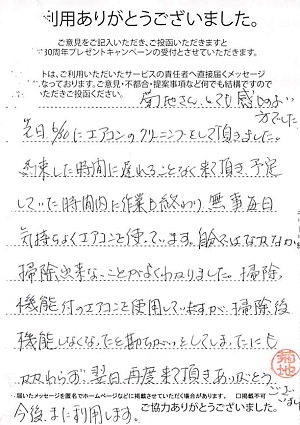 利用ありがとうございました。
ご意見をご記入いただき、ご投函いただきますと
30周年プレゼントキャンペーンの受付とさせていただきます。
トは、ご利用いただいたサービスの責任者へ直接届くメッセージ
なっております。ご意見・不都合・提案事項など何でも結構ですので
いただきご投函ください。
菊地さん、とても感じのよい
方でした
先日6/30にエアコンのクリーニングをして頂きました。
約束した時間に遅れることなく来て頂き、予定
していた時間内に作業も終わり、無事毎日
気持ちよくエアコンを使っています。自分ではなかなか
掃除出来ないことがよくわかりました。掃除
機能付のエアコンを使用していますが、掃除後
機能しなくなったと勘ちがいをしてしまったにも
かかわらず、翌日、再度来て頂きありがとう
ございました
菊地
届いたメッセージを匿名でホームページなどに掲載させていただく場合があります。 □掲載不可
今後、また利用します。
ご協力ありがとうございました。